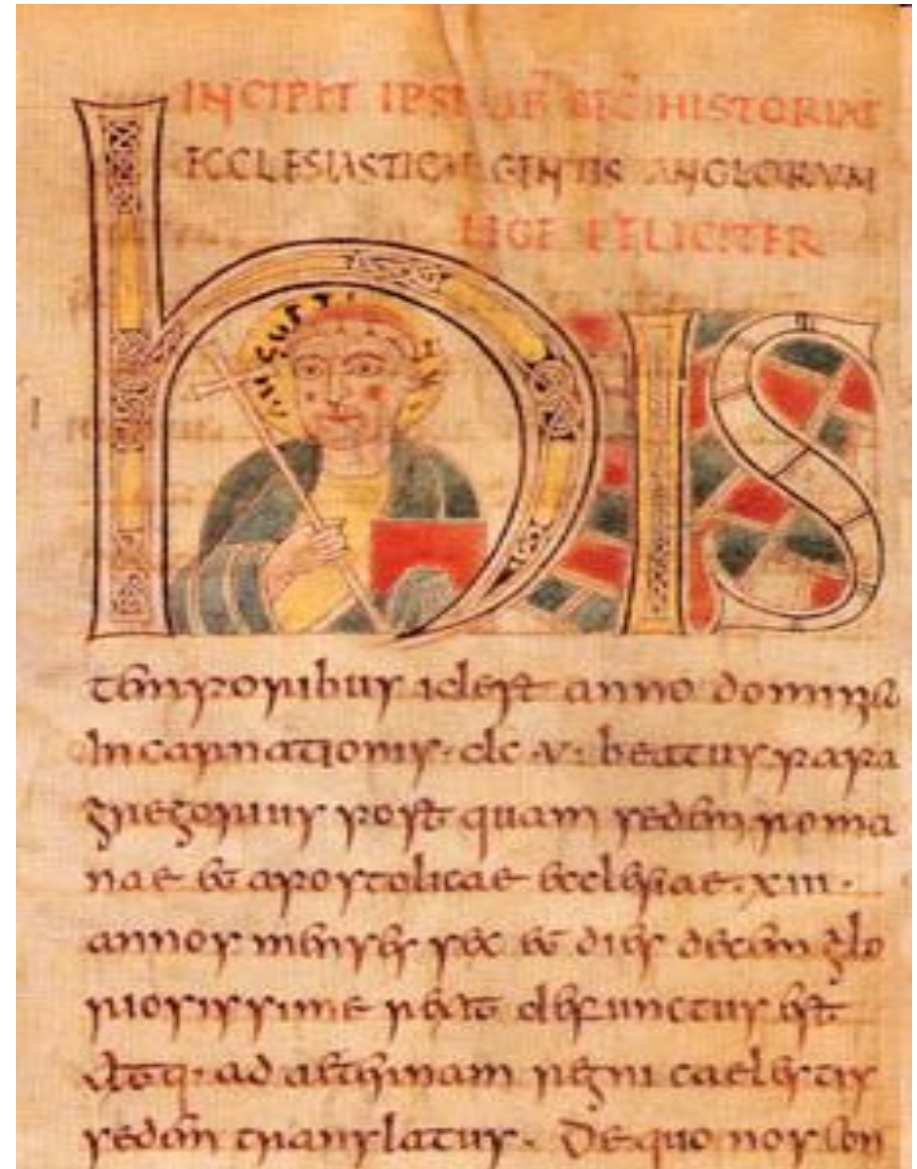 INCIPIT IPSIUS SECUNDUS HISTORIAE
ECCLESIASTICAE GENTIS ANGLORUM
LEGE FELICITER
AUGUSTINUS
his
temporibus id est anno dominicae
incarnationis · dc · v · beatus papa
gregorius postquam sedem roma
nae et apostolicae ecclesiae · xiii ·
annos menses sex et dies decem glo
riosissime rexit defunctus est
atq· ad aeternam regni caelestis
sedem translatus · De quo nos con